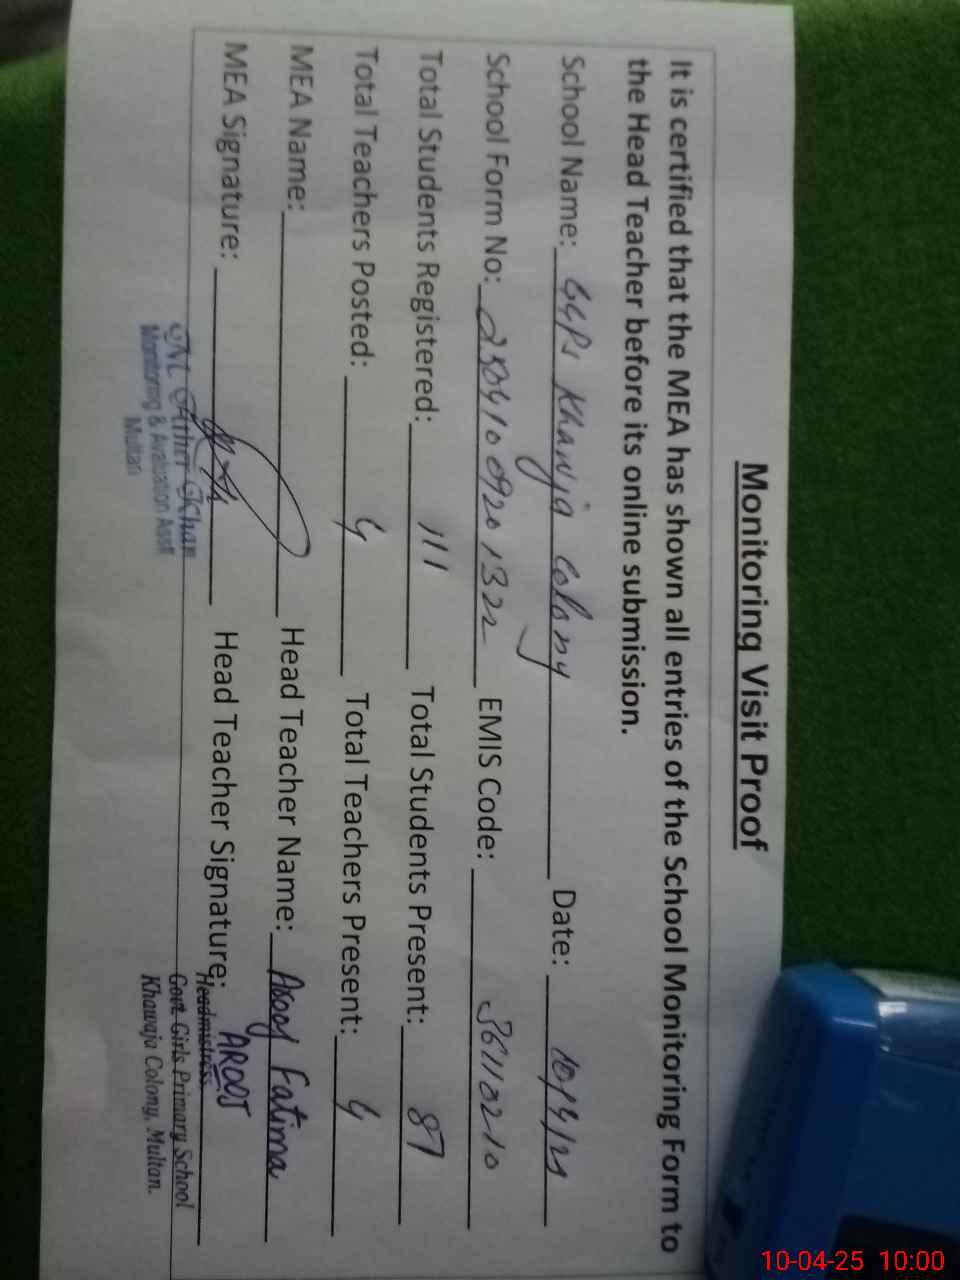 Monitoring Visit Proof
It is certified that the MEA has shown all entries of the School Monitoring Form to
the Head Teacher before its online submission.
School Name: GGPS Khawja Colony Date: 10/4/25
School Form No: 25041009201322 EMIS Code: 36110210
Total Students Registered: 111 Total Students Present: 87
Total Teachers Posted: 4 Total Teachers Present: 4
MEA Name: Head Teacher Name: Fatima
MEA Signature: Head Teacher Signature: AROOJ
M. Ather Khan
Monitoring & Evaluation Asstt
Multan
Headmistress
Govt Girls Primary School
Khawaja Colony, Multan.
10-04-25 10:00